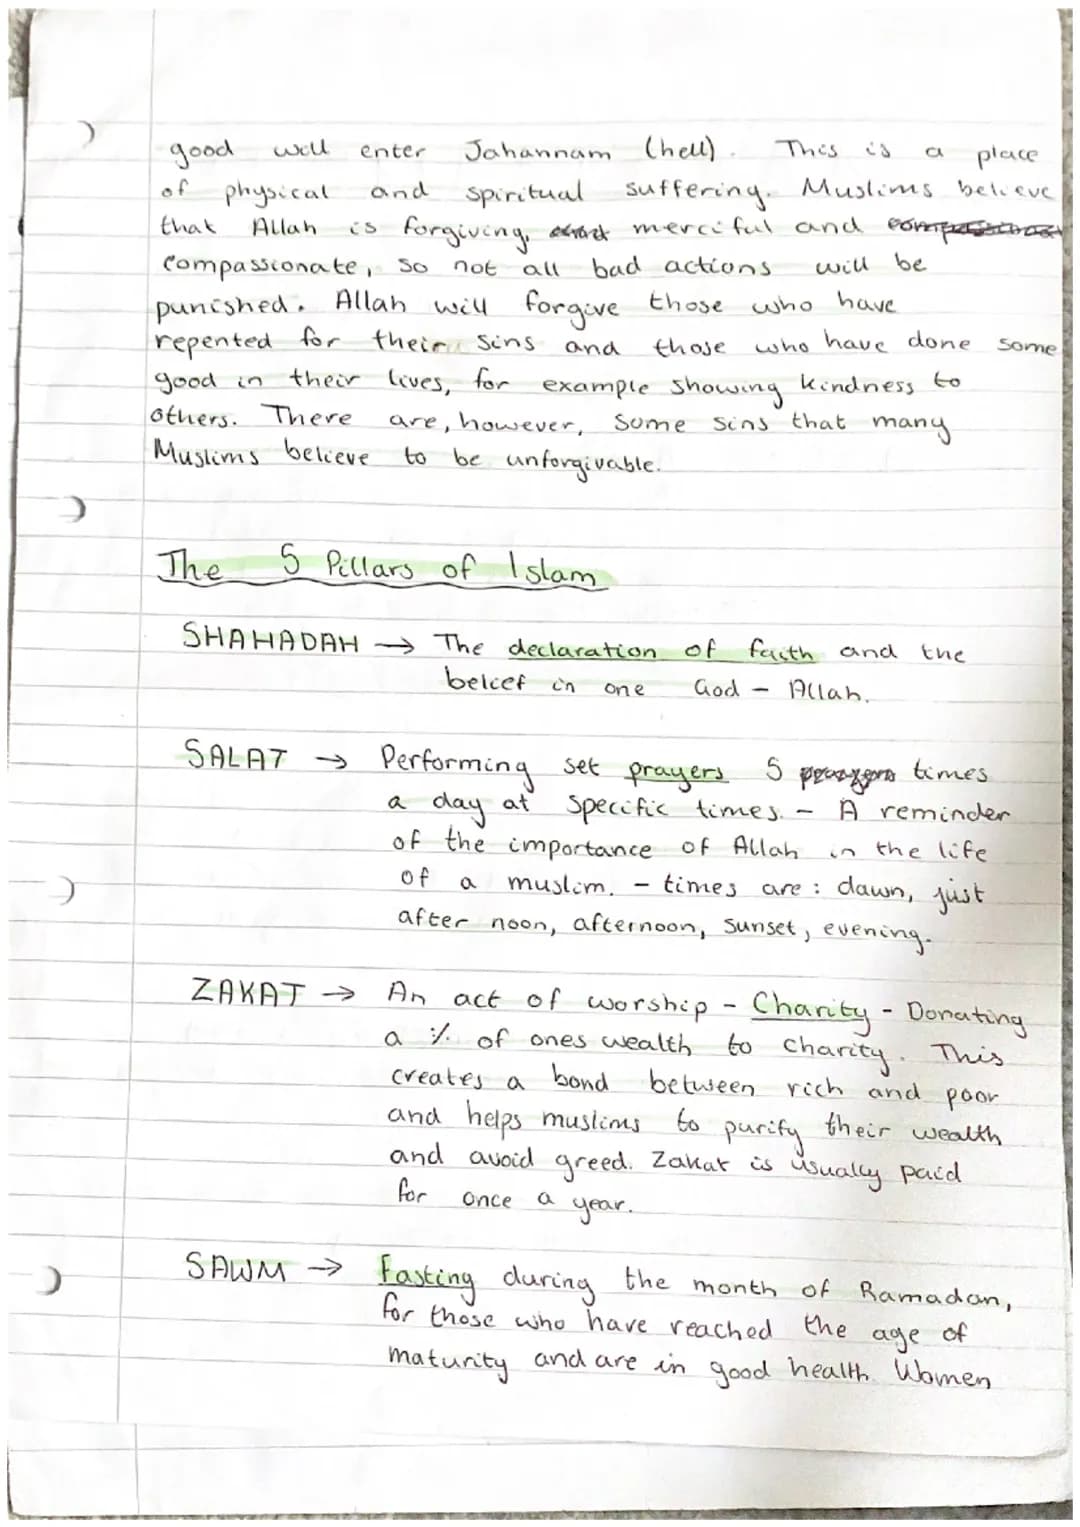 good will enter Jahannam (hell). This is a place
of physical and spiritual suffering. Muslims believe
that Allah is forgiving, merciful and
compassionate, so not all bad actions will be
punished. Allah will forgive those who have
repented for their sins and those who have done some
good in their lives, for example showing kindness to
others. There are, however, some sins that many
Muslims believe to be unforgivable.
The 5 Pillars of Islam
SHAHADAH → The declaration of faith and the
belief in one God - Allah.
SALAT → Performing set prayers 5 times
a day at specific times. - A reminder
of the importance of Allah in the life
of a muslim. - times are: dawn, just
after noon, afternoon, sunset, evening.
ZAKAT → An act of worship - Charity - Donating
a % of ones wealth to charity. This
creates a bond between rich and poor
and helps muslims to purify their wealth
and avoid greed. Zakat is usually paid
for once a year.
SAWM → Fasting during the month of Ramadan,
for those who have reached the age of
maturity and are in good health. Women